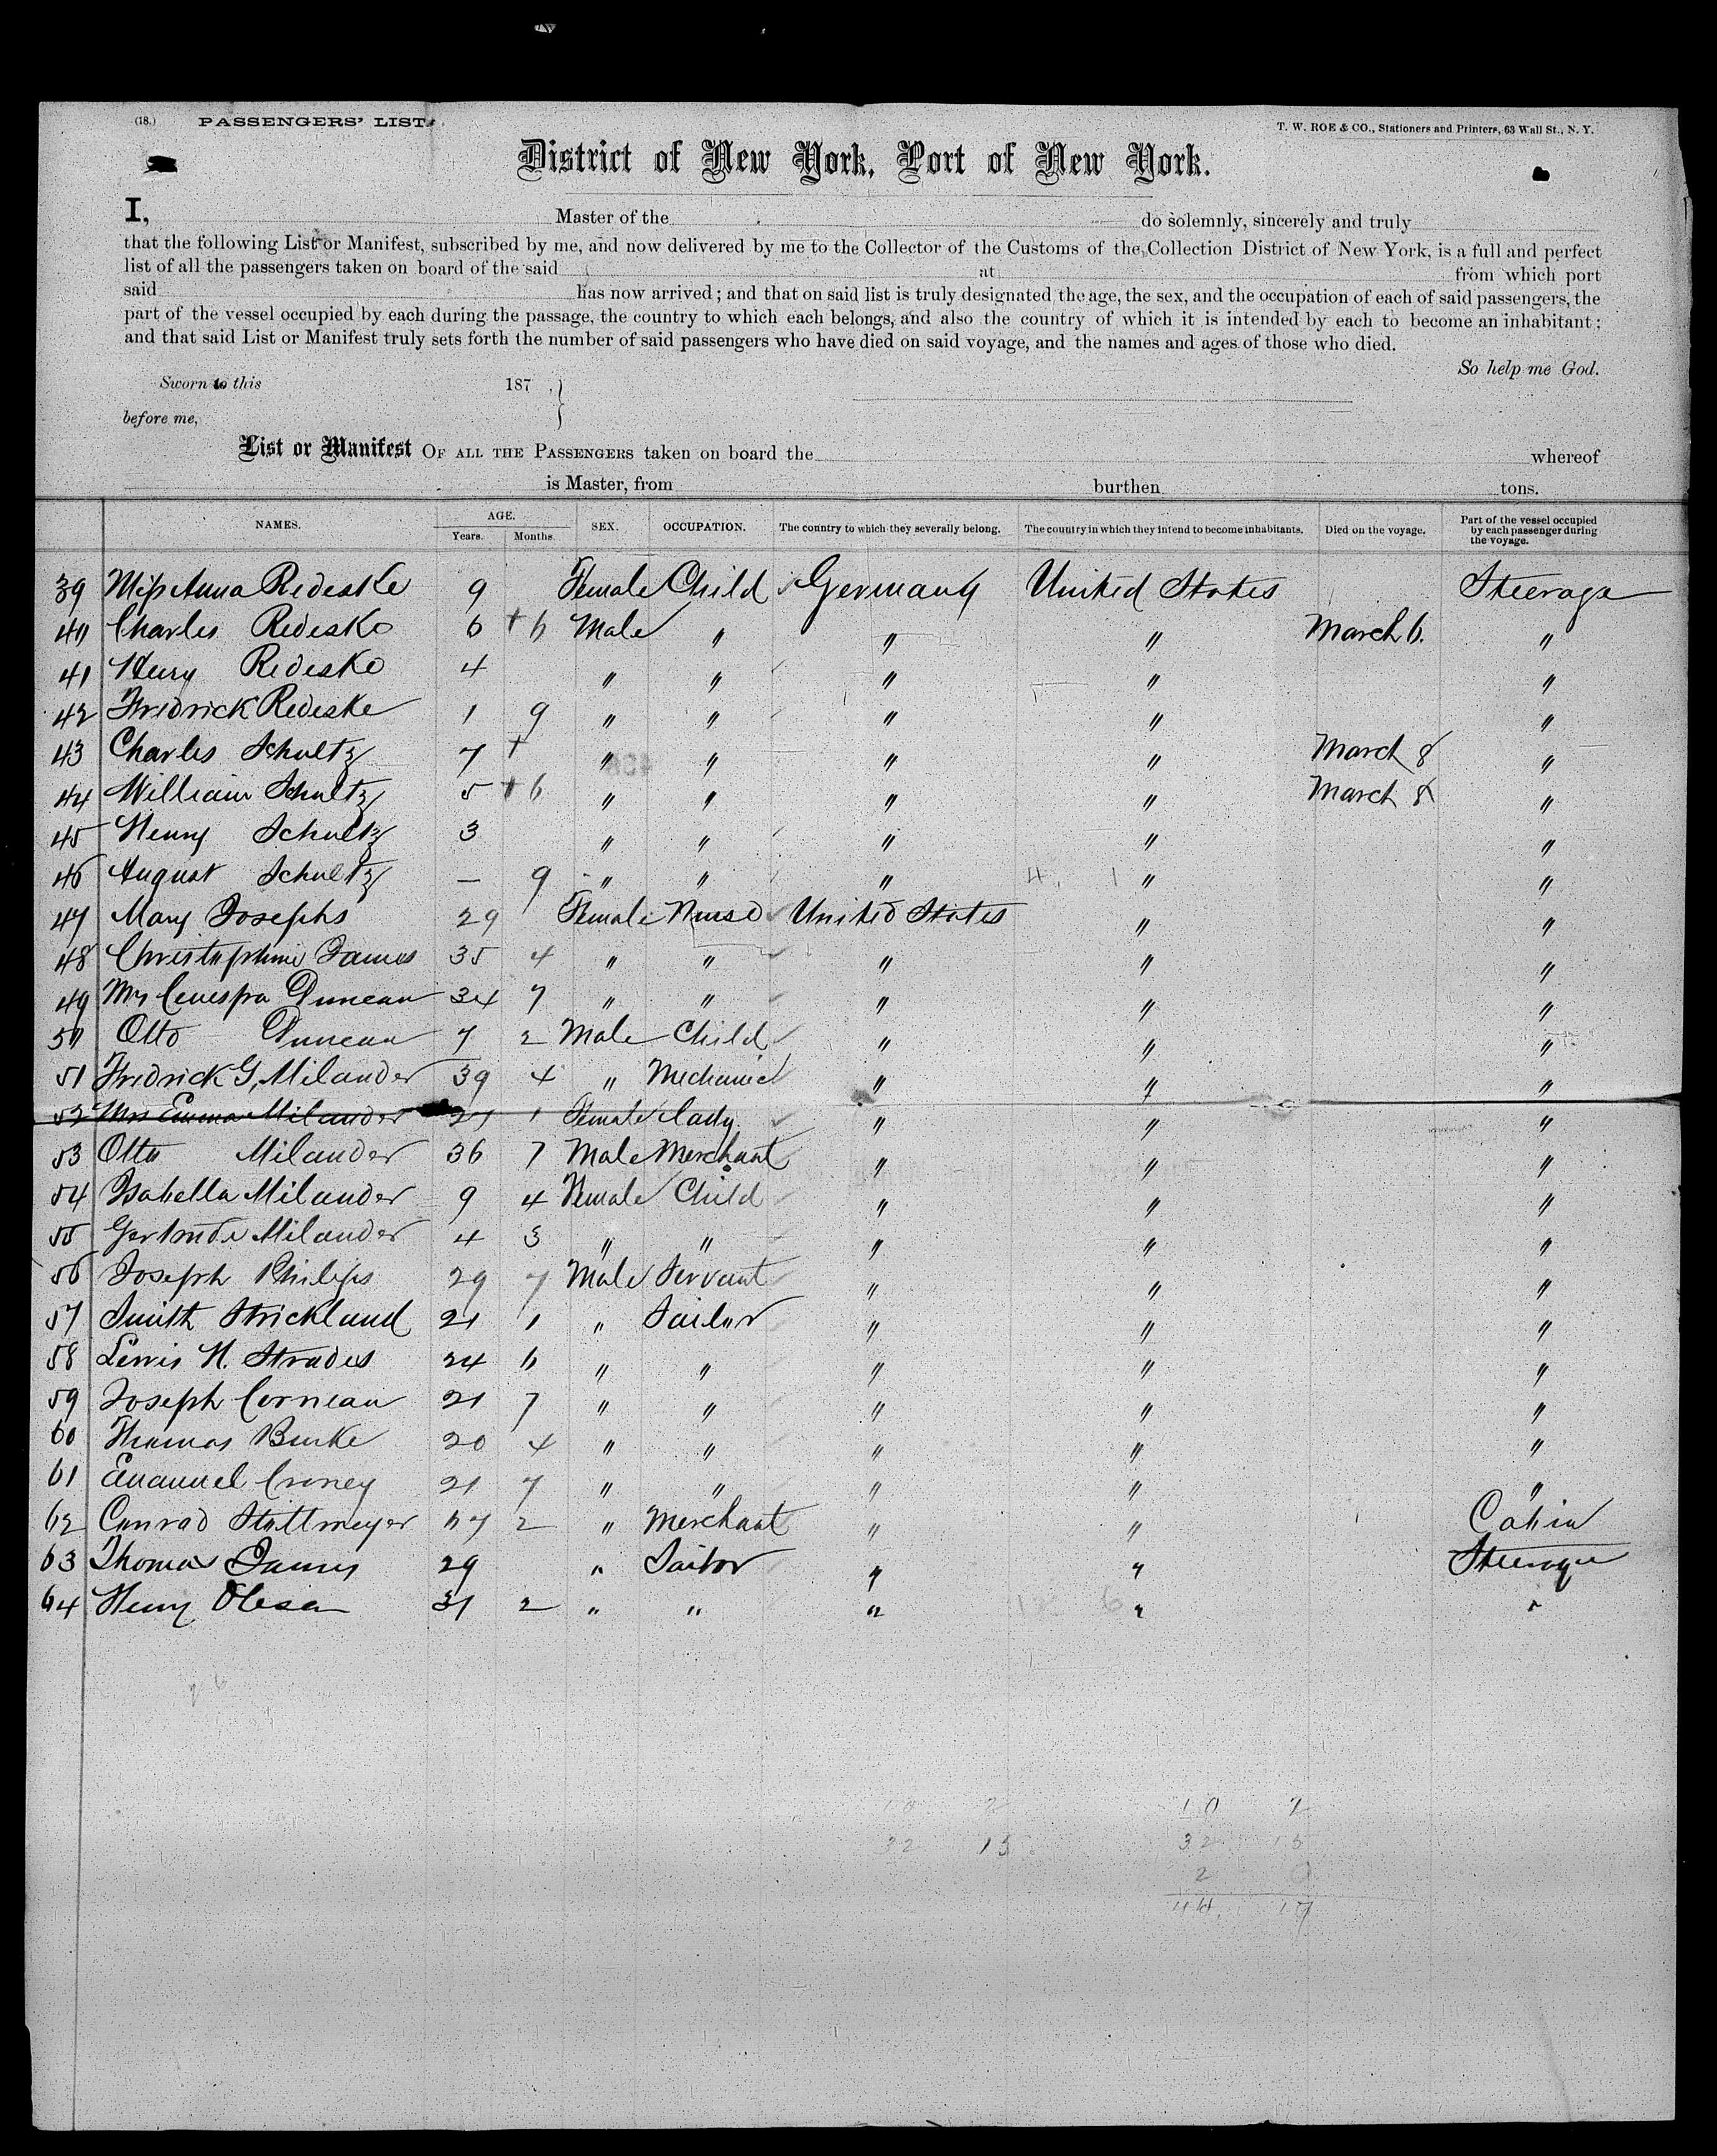 (18.) PASSENGERS' LIST. T. W. ROE & CO., Stationers and Printers, 63 Wall St., N. Y.
District of New York, Port of New York.
I, Master of the do solemnly, sincerely and truly
that the following List or Manifest, subscribed by me, and now delivered by me to the Collector of the Customs of the Collection District of New York, is a full and perfect
list of all the passengers taken on board of the said at from which port
said has now arrived; and that on said list is truly designated the age, the sex, and the occupation of each of said passengers, the
part of the vessel occupied by each during the passage, the country to which each belongs, and also the country of which it is intended by each to become an inhabitant;
and that said List or Manifest truly sets forth the number of said passengers who have died on said voyage, and the names and ages of those who died.
So help me God.
Sworn to this 187
before me,
List or Manifest OF ALL THE PASSENGERS taken on board the whereof
is Master, from burthen tons.
NAMES. AGE. Years. Months. SEX. OCCUPATION. The country to which they severally belong. The country in which they intend to become inhabitants. Died on the voyage. Part of the vessel occupied by each passenger during the voyage.
39 Miss Anna Redeske 9 Female Child Germany United States Steerage
40 Charles Redeske 6 + 6 Male " " " March 6. "
41 Henry Redeske 4 " " " " "
42 Fredrick Redeske 1 9 " " " " "
43 Charles Schultz 7 + " " " " March 8 "
44 William Schultz 5 + 6 " " " " March 8 "
45 Henry Schultz 3 " " " " "
46 August Schultz — 9 " " " " "
47 Mary Josephs 29 Female Nurse United States " "
48 Christophine James 35 4 " " " " "
49 Duncan 34 7 " " " " "
50 Otto Duncan 7 2 Male Child " " "
51 Fredrick G. Milander 39 4 " Mechanic " " "
52 Mrs Emma Milander 27 1 Female Lady " " "
53 Otto Milander 36 7 Male Merchant " " "
54 Isabella Milander 9 4 Female Child " " "
55 Gertrude Milander 4 3 " " " " "
56 Joseph Philips 29 7 Male Servant " " "
57 Smith Strickland 21 1 " Sailor " " "
58 Lewis H. Strades 24 6 " " " " "
59 Joseph Corneau 21 7 " " " " "
60 Thomas Burke 20 4 " " " " "
61 Emanuel Croney 21 7 " " " " "
62 Conrad Stottmeyer 67 2 " Merchant " " Cabin
63 Thomas James 29 " Sailor " " Steerage
64 Henry Olesen 31 2 " " " " "
10 2 10 2
32 15 32 15
2 0
44 17